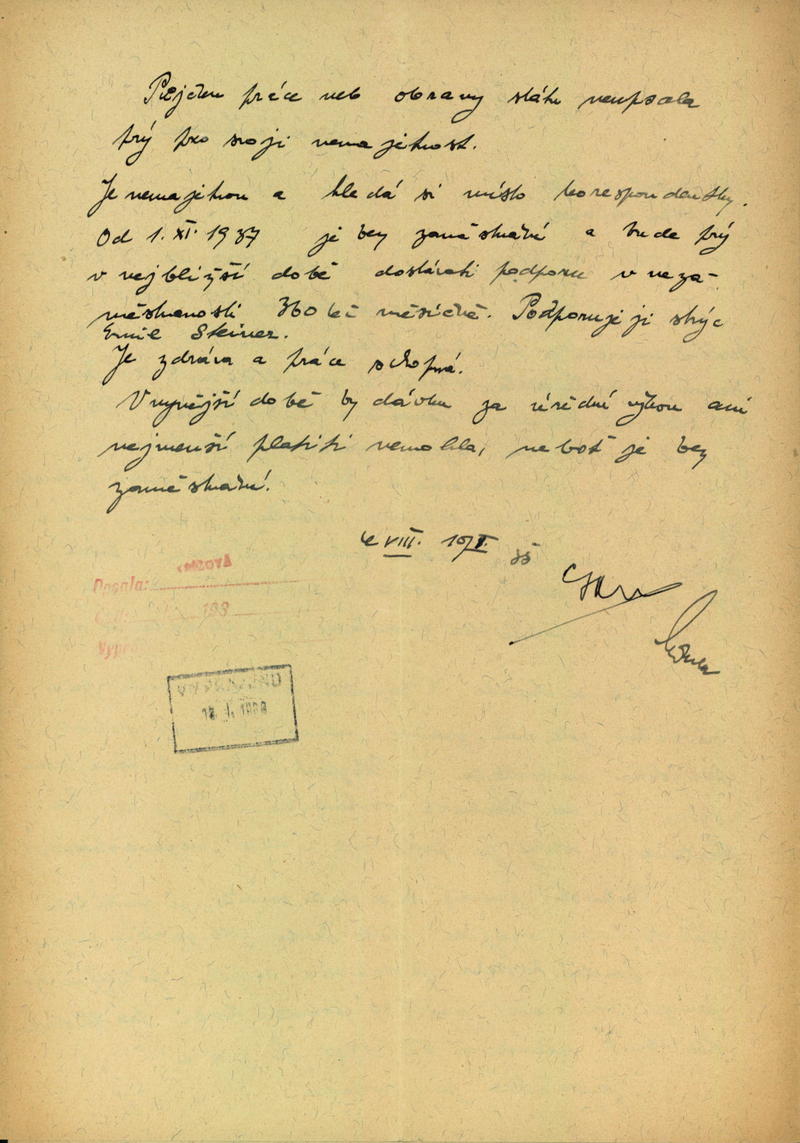 Půjčku práce neb obrany státu neupsala
prý pro svoji nemajetnost.
Je nemajetnou a hledá si místo korespondentky.
Od 1. XI. 1937 je bez zaměstnání a bude prý
v nejbližší době dostávati podporu v neza-
městnanosti 360 kč měsíčně. Podporuje ji strýc
Emil Steiner.
Je zdráva a práce schopná.
V nynější době by dávku za úřední výkon ani
nejmenší platiti nemohla, neboť je bez
zaměstnání.
VIII.
Dopsala:
193